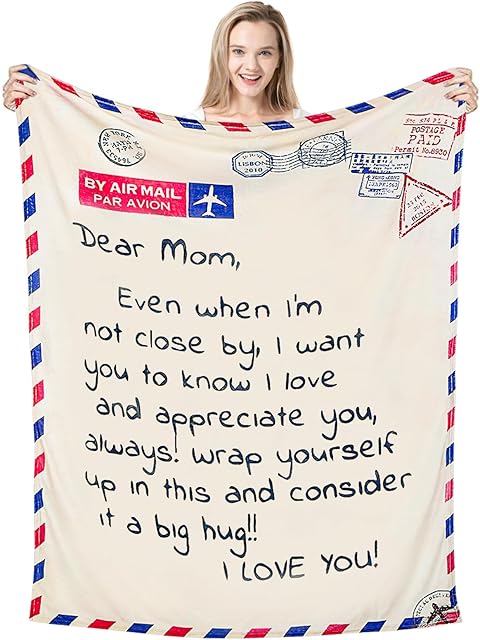 NEW YORK
7-PM
LISBON
2010
POSTAGE
PAID
Permit No.8930
HONG KONG
BY AIR MAIL
PAR AVION
Dear Mom,
Even when I'm
not close by, I want
you to know I love
and appreciate you,
always! wrap yourself
up in this and consider
it a big hug!!
I LOVE YOU!